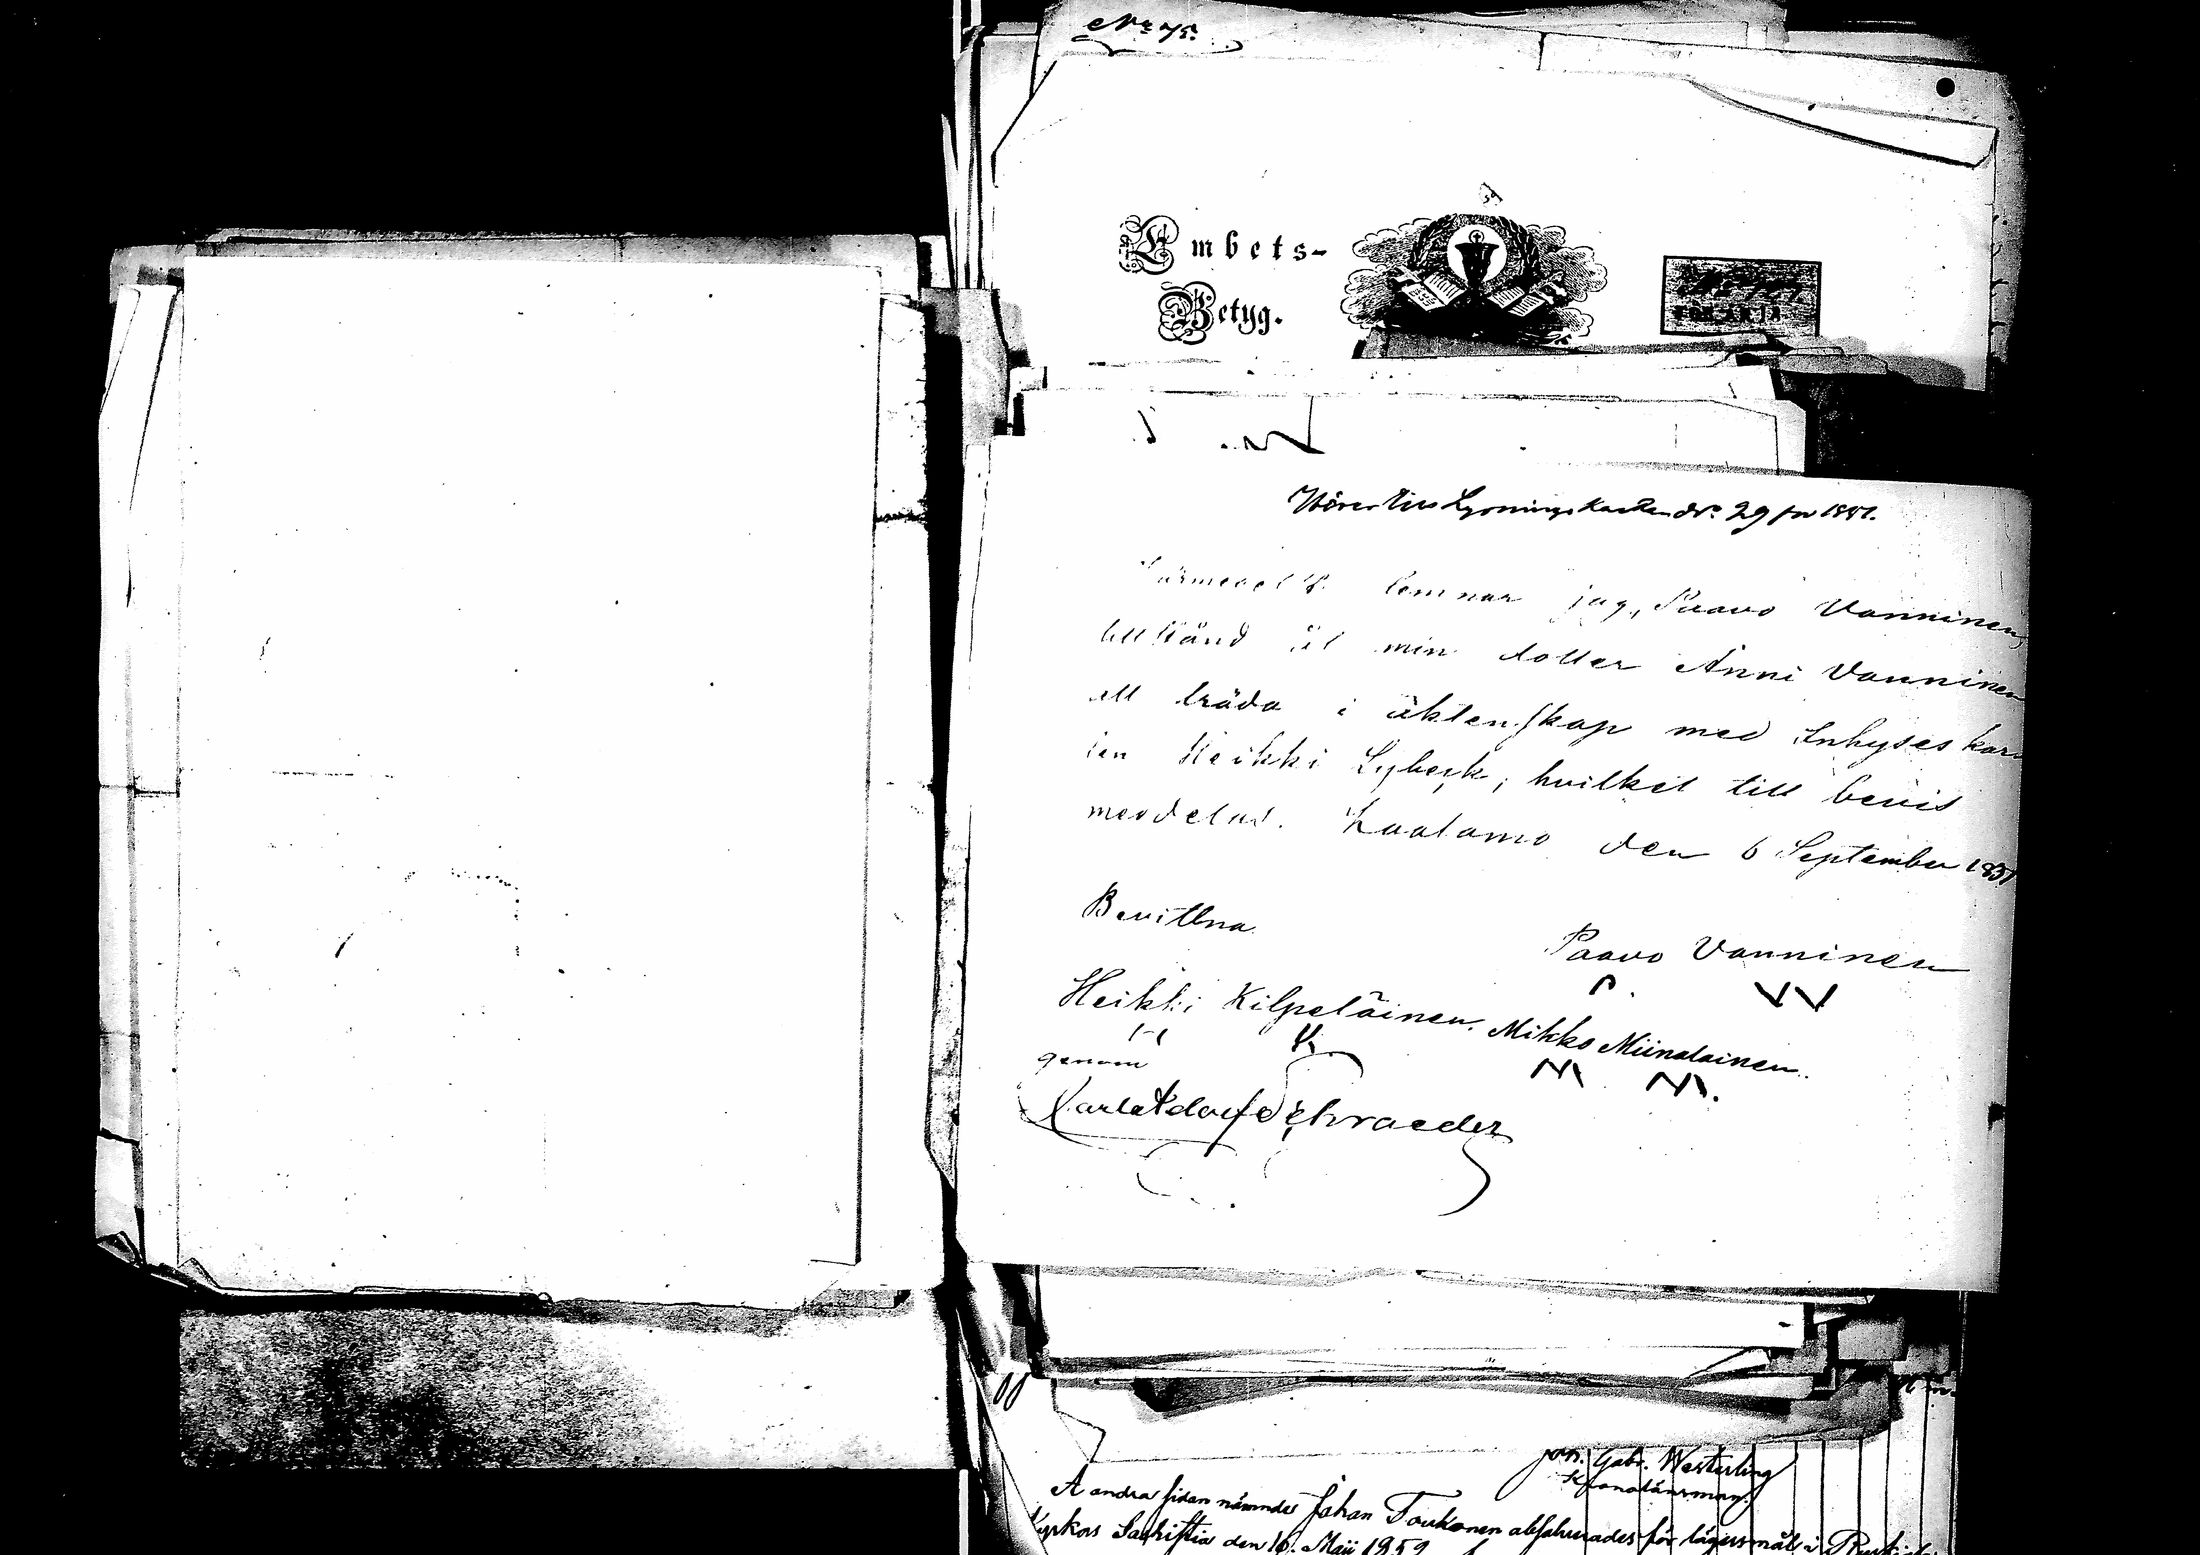 No 75.
Embets-
Betyg.
Hörer till Lysningskasten No 29 for 1881.
Härmedelst lemnar jag, Paavo Vanninen,
tillstånd åt min dotter Anni Vanninen
att träda i äktenskap med Inhyses kar
len Heikki Lybeck, hvilket till bevis
meddelas. Laatamo den 6 September 1881
Bevittna
Paavo Vanninen
P. VV
Heikki Kilpeläinen. Mikko Miinalainen.
H K. M M.
genom
Karl Adolf Schraeder
Joh. Gabr. Westerling
Kronolänsman
A andra sidan nämnde Johan Toukonen absolverades för lägersmål i
Kyrkos Sakristia den 16. Maii 1859